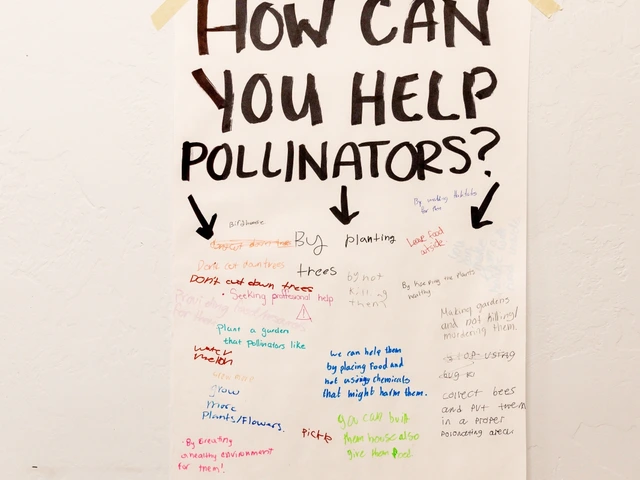 HOW CAN
YOU HELP
POLLINATORS?
By making habitats
for them
Birdhouse
By planting
trees
Leave food
outside
Don't cut down trees
DON'T cut down trees
• Seeking professional help
by not
killing
them
By keeping the plants
healthy
Making gardens
and not killing/
murdering them.
Plant a garden
that Pollinators like
water
melon
we can help them
by placing food and
not using chemicals
that might harm them.
STOP USING
grow
more
Plants/Flowers.
collect bees
and PUT them
in a PROPER
Pick up
you can built
them house also
give them food
• By Creating
a healthy environment
for them!